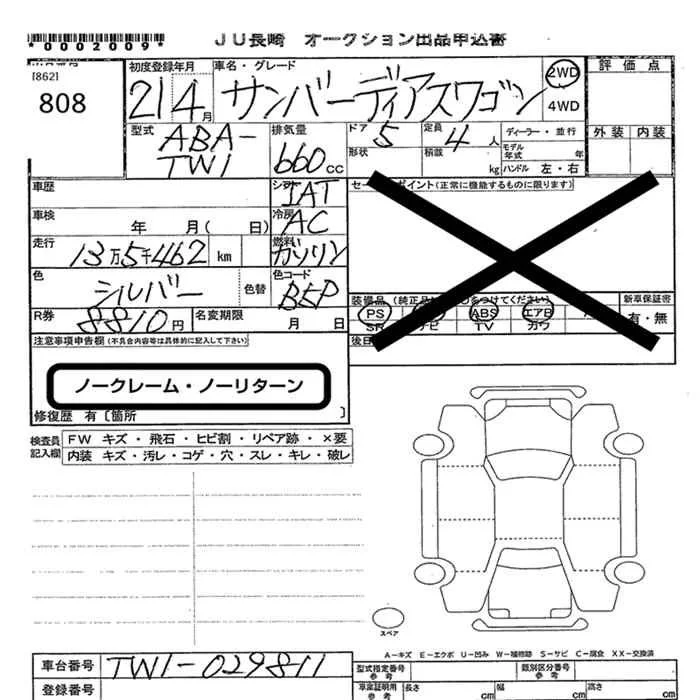 *0002009* JU長崎 オークション出品申込書
[862]
808
初度登録年月 車名・グレード 2WD 評価点
21 4月 サンバーディアスワゴン 4WD
型式 排気量 ドア 定員 ディーラー・並行 外装 内装
ABA-TW1 660cc 5 4人
形状 積載 kg モデル年式 年
ハンドル 左・右
車歴 シフト IAT セールスポイント(正常に機能するものに限ります)
車検 年 月( 日) 冷房 AC
走行 13万5千462 km 燃料 ガソリン
色 シルバー 色替 色コード B5P
装備品 (純正品に○をつけてください) 新車保証書
PS ABS エアB 有・無
SR ナビ TV カワ
R券 8810円 名変期限 月 日
注意事項申告欄(不具合内容等は具体的に記入して下さい) 後日
ノークレーム・ノーリターン
修復歴 有〔箇所 〕
検査員記入欄 FW キズ・飛石・ヒビ割・リペア跡・×要
内装 キズ・汚レ・コゲ・穴・スレ・キレ・破レ
スペア
A-キズ E-エクボ U-凹み W-補修跡 S-サビ C-腐食 XX-交換済
車台番号 TW1-029811 型式指定番号 参考 類別区分番号 参考
登録番号 車庫証明用 参考 長さ cm 幅 cm 高さ cm